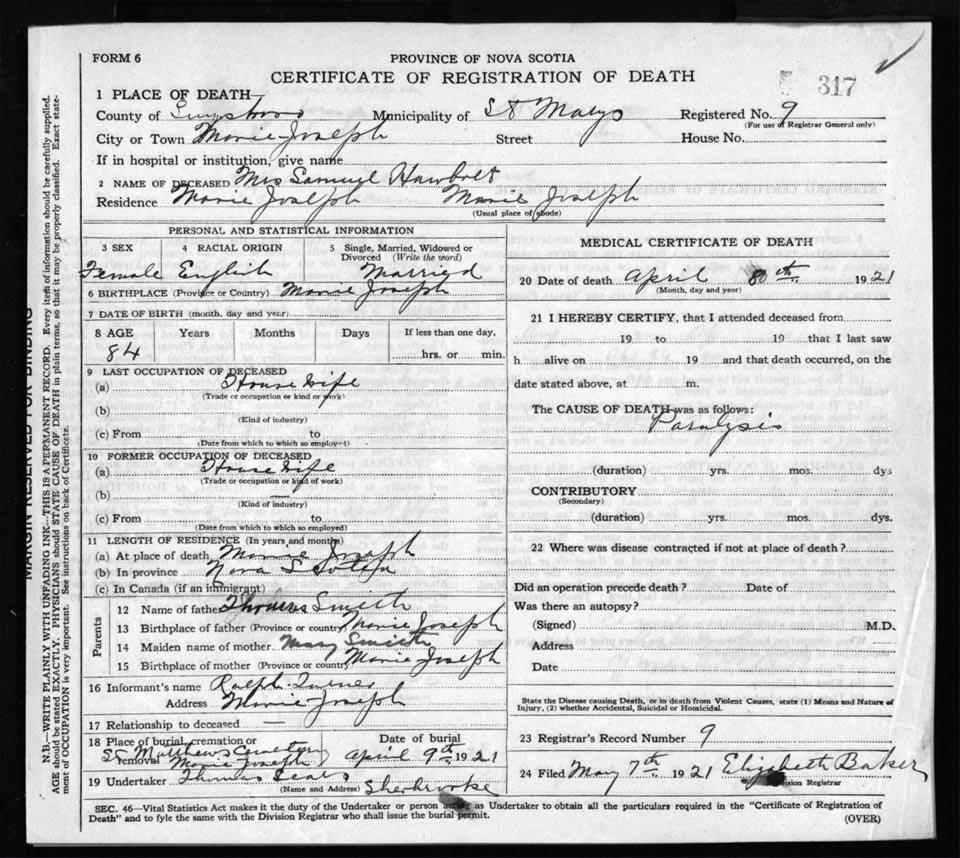 FORM 6
PROVINCE OF NOVA SCOTIA
CERTIFICATE OF REGISTRATION OF DEATH
317
1 PLACE OF DEATH—
County of Guysboro Municipality of St Marys Registered No. 9
(For use of Registrar General only)
City or Town Marie Joseph Street House No.
If in hospital or institution, give name
2 NAME OF DECEASED Mrs Samuel Hawbolt
Residence Marie Joseph Marie Joseph
(Usual place of abode)
PERSONAL AND STATISTICAL INFORMATION
3 SEX 4 RACIAL ORIGIN 5 Single, Married, Widowed or Divorced (Write the word)
Female English Married
6 BIRTHPLACE (Province or Country) Marie Joseph
7 DATE OF BIRTH (month, day and year)
8 AGE Years Months Days If less than one day,
84 hrs. or min.
9 LAST OCCUPATION OF DECEASED
(a) House wife
(Trade or occupation or kind or work)
(b)
(Kind of industry)
(c) From to
(Date from which to which so employed)
10 FORMER OCCUPATION OF DECEASED
(a) House wife
(Trade or occupation or kind of work)
(b) —
(Kind of industry)
(c) From to
(Date from which to which so employed)
11 LENGTH OF RESIDENCE (In years and months)
(a) At place of death Marie Joseph
(b) In province Nova Scotia
(c) In Canada (if an immigrant)
Parents
12 Name of father Thomas Smith
13 Birthplace of father (Province or country) Marie Joseph
14 Maiden name of mother. Mary Smith
15 Birthplace of mother (Province or country) Marie Joseph
16 Informant's name Ralph Turner
Address Marie Joseph
17 Relationship to deceased —
18 Place of burial, cremation or removal Date of burial
St Matthews Cemetery Marie Joseph April 9th 1921
19 Undertaker Thomas
(Name and Address) Sherbrooke
MEDICAL CERTIFICATE OF DEATH
20 Date of death April 8th 1921
(Month, day and year)
21 I HEREBY CERTIFY, that I attended deceased from
19 to 19 that I last saw
h alive on 19 and that death occurred, on the
date stated above, at m.
The CAUSE OF DEATH was as follows:
Paralysis
(duration) yrs. mos. dys
CONTRIBUTORY
(Secondary)
(duration) yrs. mos. dys.
22 Where was disease contracted if not at place of death?
Did an operation precede death? Date of
Was there an autopsy?
(Signed) M.D.
Address
Date
State the Disease causing Death, or in death from Violent Causes, state (1) Means and Nature of
Injury, (2) whether Accidental, Suicidal or Homicidal.
23 Registrar's Record Number 9
24 Filed May 7th 1921 Elizabeth Baker
Division Registrar
SEC. 46—Vital Statistics Act makes it the duty of the Undertaker or person acting as Undertaker to obtain all the particulars required in the "Certificate of Registration of
Death" and to fyle the same with the Division Registrar who shall issue the burial permit.
(OVER)
MARGIN RESERVED FOR BINDING
N.B.—WRITE PLAINLY WITH UNFADING INK—THIS IS A PERMANENT RECORD. Every item of information should be carefully supplied.
AGE should be stated EXACTLY. PHYSICIANS should STATE CAUSE OF DEATH in plain terms, so that it may be properly classified. Exact state-
ment of OCCUPATION is very important. See instructions on back of Certificate.